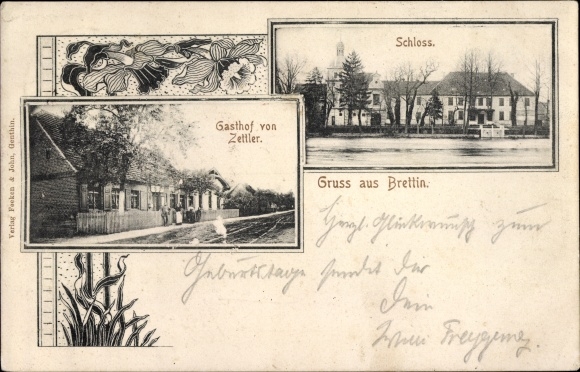 Schloss.
Gasthof von
Zettler.
Gruss aus Brettin.
Verlag Foeken & John, Genthin.
Herzl. Glückwunsch zum
Geburtstage sendet Dir
Dein